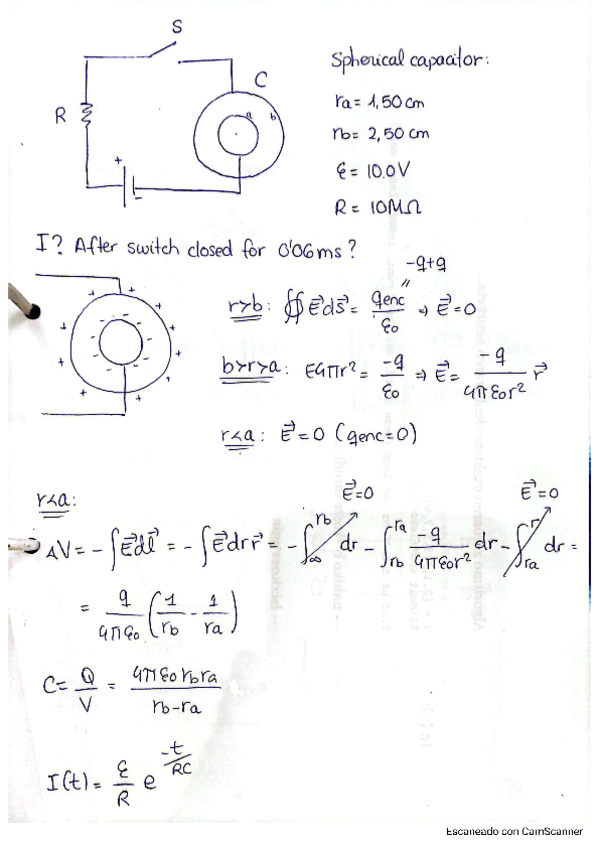 S
Spherical capacitor:
C
a
b
ra = 1,50 cm
R
rb = 2,50 cm
+
-
ε = 10.0 V
R = 10MΩ
I? After switch closed for 0'06 ms?
-q+q
r>b: ∯E⃗ds⃗ = qenc/εo → E⃗=0
b>r>a: E4πr² = -q/εo ⇒ E⃗ = -q/4πεor² r⃗
r<a: E⃗=0 (qenc=0)
r<a:
E⃗=0 E⃗=0
ΔV = -∫E⃗dl⃗ = -∫E⃗dr r⃗ = -∫_∞^rb dr - ∫_rb^ra -q/4πεor² dr - ∫_ra^r dr =
= q/4πεo (1/rb - 1/ra)
C = Q/V = 4πεorbra/rb-ra
I(t) = ε/R e^-t/RC
Escaneado con CamScanner